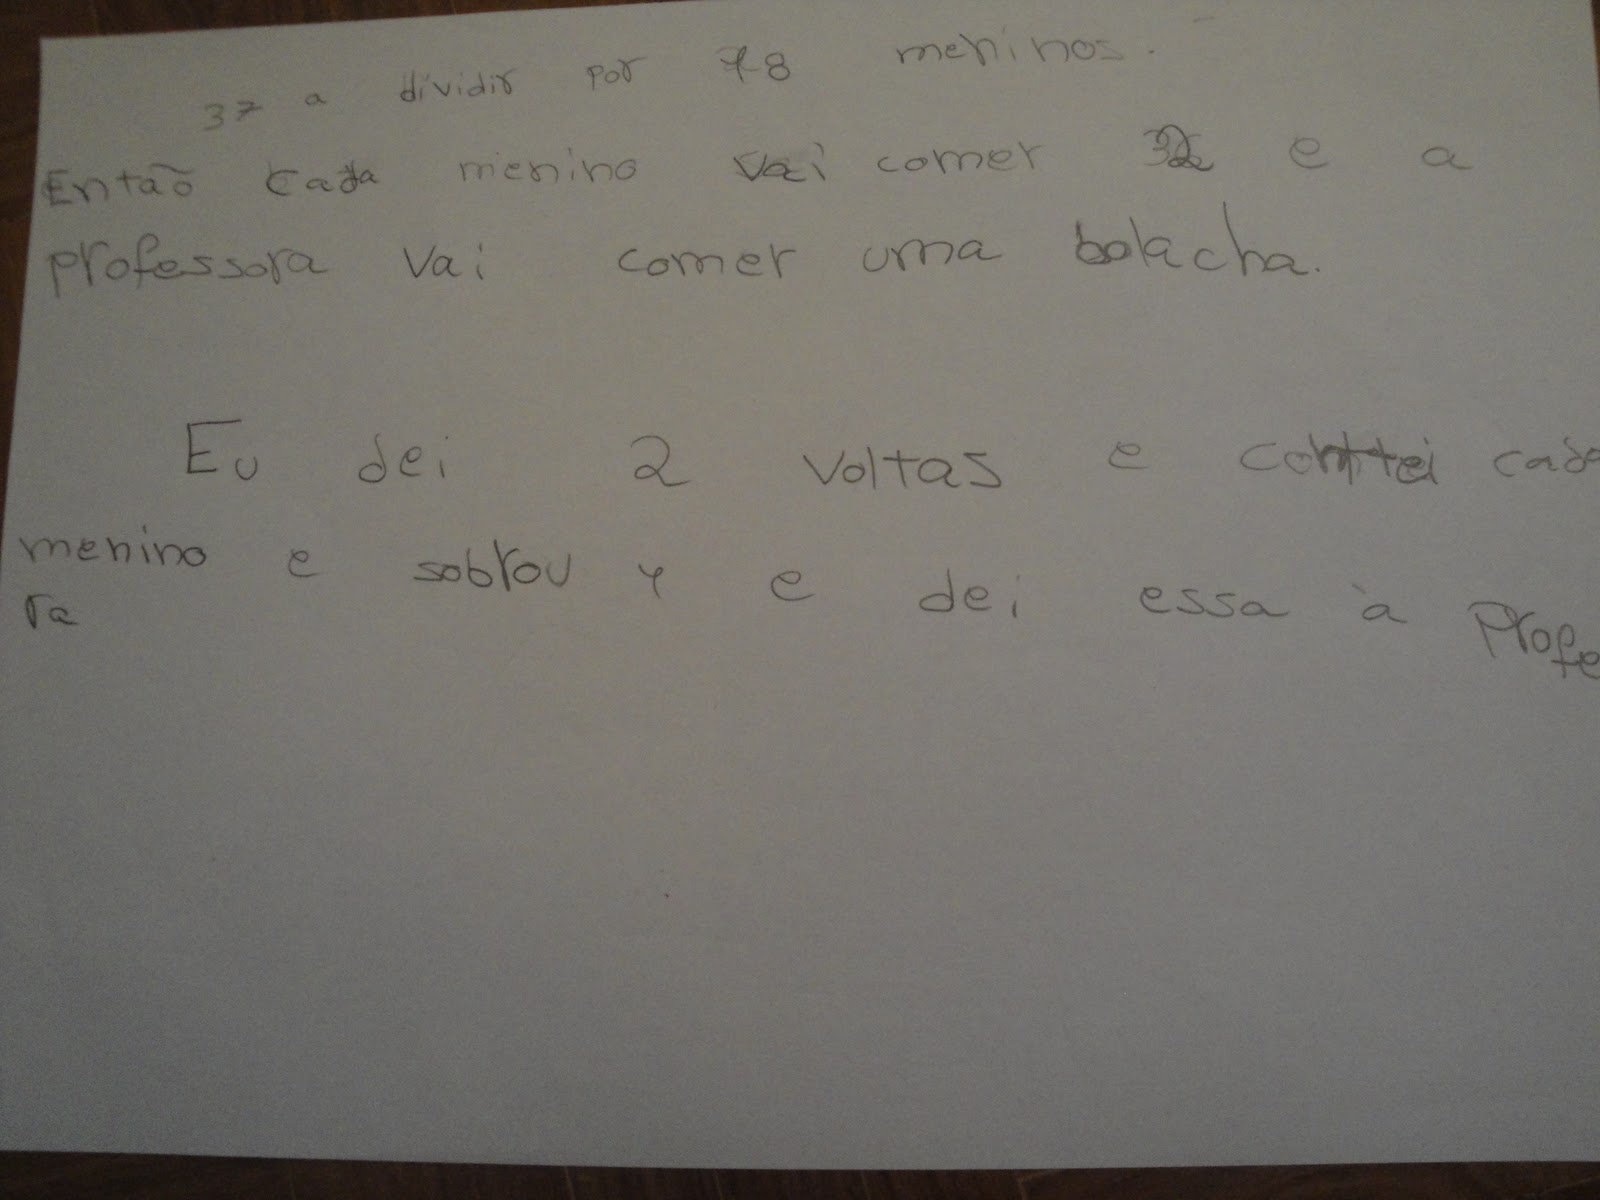 37 a dividir por 18 meninos.
Então cada menino vai comer 2 e a
professora vai comer uma bolacha.
Eu dei 2 voltas e contei cada
menino e sobrou 1 e dei essa à Profe
ra